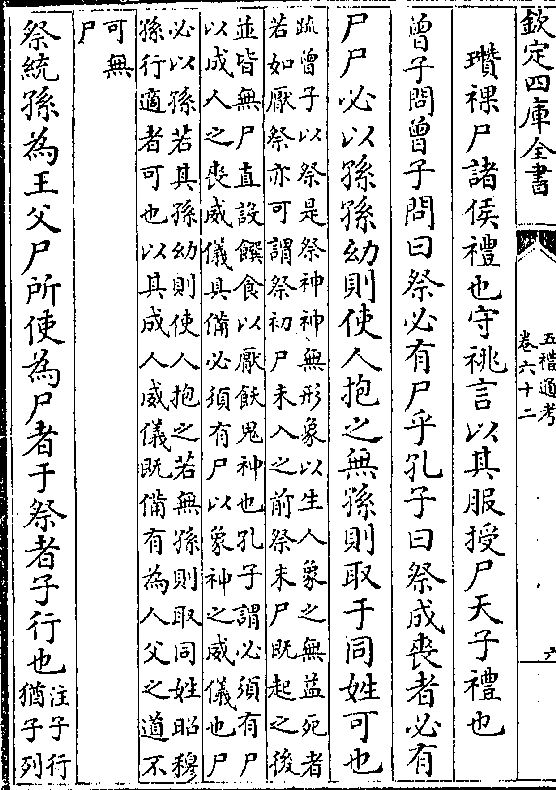 欽定四庫全書
五禮通考
卷六十二
六
瓚祼尸諸侯禮也守祧言以其服授尸天子禮也
曾子問曾子問曰祭必有尸乎孔子曰祭成喪者必有
尸尸必以孫孫幼則使人抱之無孫則取于同姓可也
疏曾子以祭是祭神神無形象以生人象之無益死者
若如厭祭亦可謂祭初尸未入之前祭末尸既起之後
並皆無尸直設饌食以厭飫鬼神也孔子謂必須有尸
以成人之喪威儀具備必須有尸以象神之威儀也尸
必以孫若其孫幼則使人抱之若無孫則取同姓昭穆
孫行適者可也以其成人威儀既備有為人父之道不
可無
尸
祭統孫為王父尸所使為尸者于祭者子行也注子行
猶子列